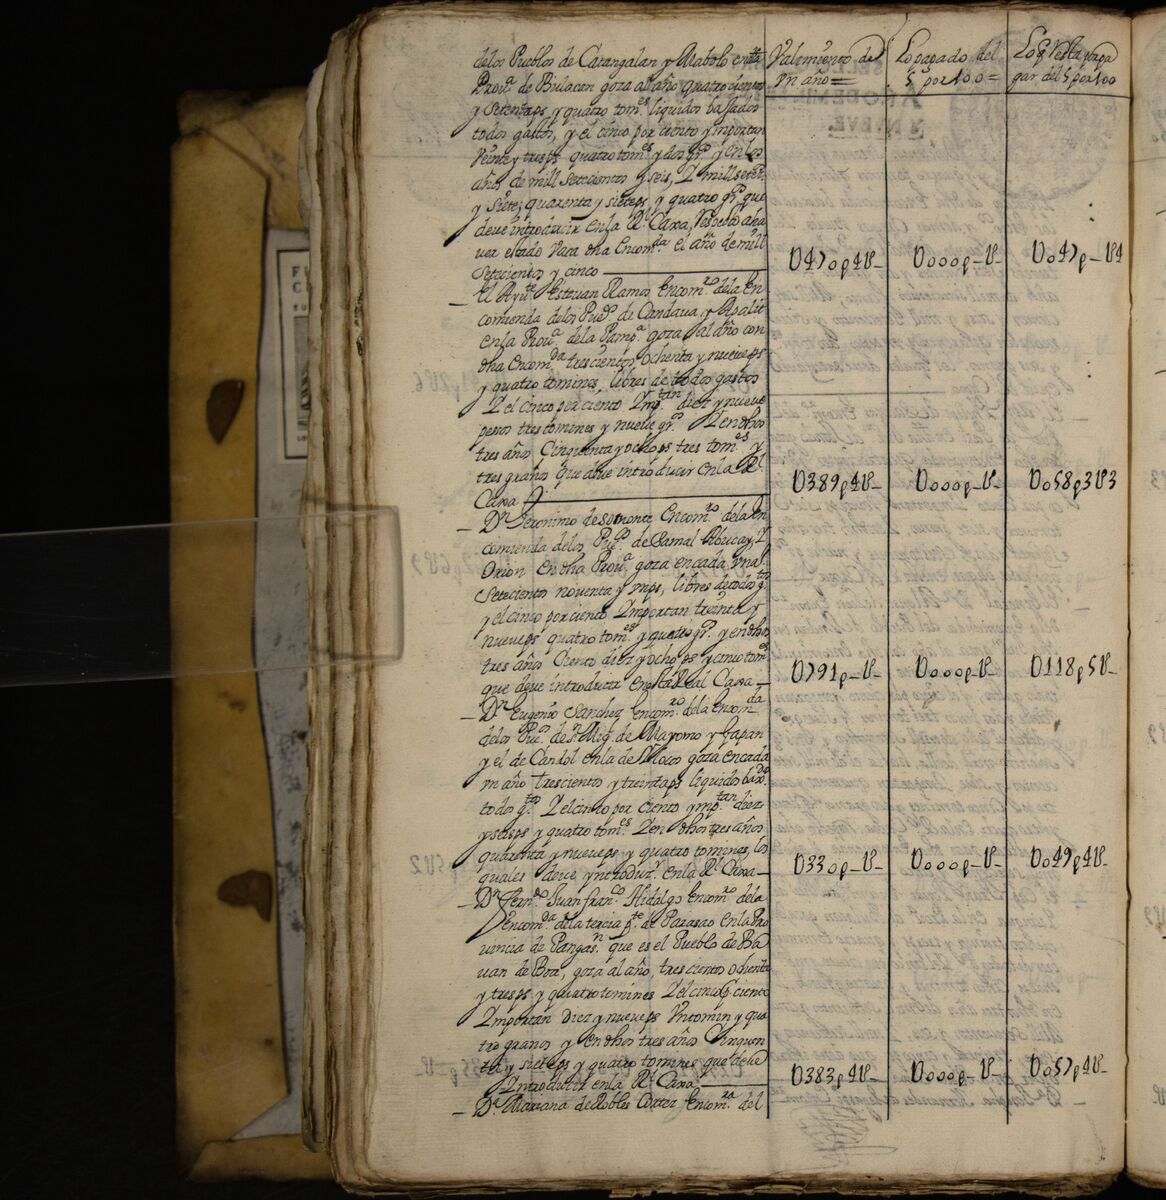 delos Pueblos de Catangalan y Mabolo enta Valimiento de Lo pagado del Lo q Resta por pa
Prouª de Bulacan goza al año quatrocientos Vn año= 5 por 100= gar del 5 por 100
y Setentaps y quatro tomes liquidos bassados
todos gastos, y el cinco por ciento ymportan
Veinte y tresps quatro tomes y dos grs y en los
años de mill Setecientos y seis, Y mill setets
y Siete; quarenta y sieteps y quatro grs que
deue introducir en la Rl Caxa, Respecto aha
uer estado Vaca dha Encomda el año de mill
Setecientos y cinco U470p4U_ U000p_U_ U047p_U4
_ El Ayute Esteuan Ramos Encomro dela en
comienda delos Puebs de Candaua, y Apalit
en la Prouª dela Pampª goza al año con
dha Encomda trescientos ochenta y nueueps
y quatro tomines, libres de todos gastos
Y el cinco por ciento Ymptan diez y nueve
pesos tres tomines y nueue grs Y en dhos
tres años Cinquenta y ochops tres tomes y
tres granos que deue introducir en la Rl
Caxa U389p4U_ U000p_U_ U058p3U3
_ Dn Jeronimo de somonte Encomro dela en
comienda delos Puebs de Samal Abucay, Y
Orion en dha Prouª goza en cada vn aº
Setecientos noventa y vnps, libres de todos gtos
y el cinco por ciento Ymportan treinta y
nueueps quatro tomes y quatro grs y en dhos
tres años Ciento diez y ocho ps y cinco tomes
que deue introducir en esta Real Caxa U791p_U_ U000p_U_ U118p5U_
_ Dn Eugenio Sanchez encomro dela Encomda
delos Puebs de Sn Migl de Mayomo y Gapan
y el de Candol en la de Ylocos goza en cada
vn año trescientos y treintaps liquidos baxdos
todos gtos Y el cinco por ciento ymptan diez
y seisps y quatro tomes Y en dhos tres años
quarenta y nueueps y quatro tomines, los
quales deue yntroduzr en la Rl Caxa U330p_U_ U000p_U_ U049p4U_
_ Dn Ferndo Juan franco Hidalgo Encomro dela
Encomda dela tercia pte de Parasao en la Pro
uincia de Pangasn que es el Pueblo de Ba
uan de Boa, goza al año, trescientos ochenta
y tresps y quatro tomines Y el cinco p ciento
Ymportan Diez y nueueps Vn tomin y qua
tro granos y en dhos tres años Cinquen
ta y sieteps y quatro tomines que deue
Introducir en la Rl Caxa U383p4U_ U000p_U_ U057p4U_
_ Dª Mariana de Robles Cortez Encomra del